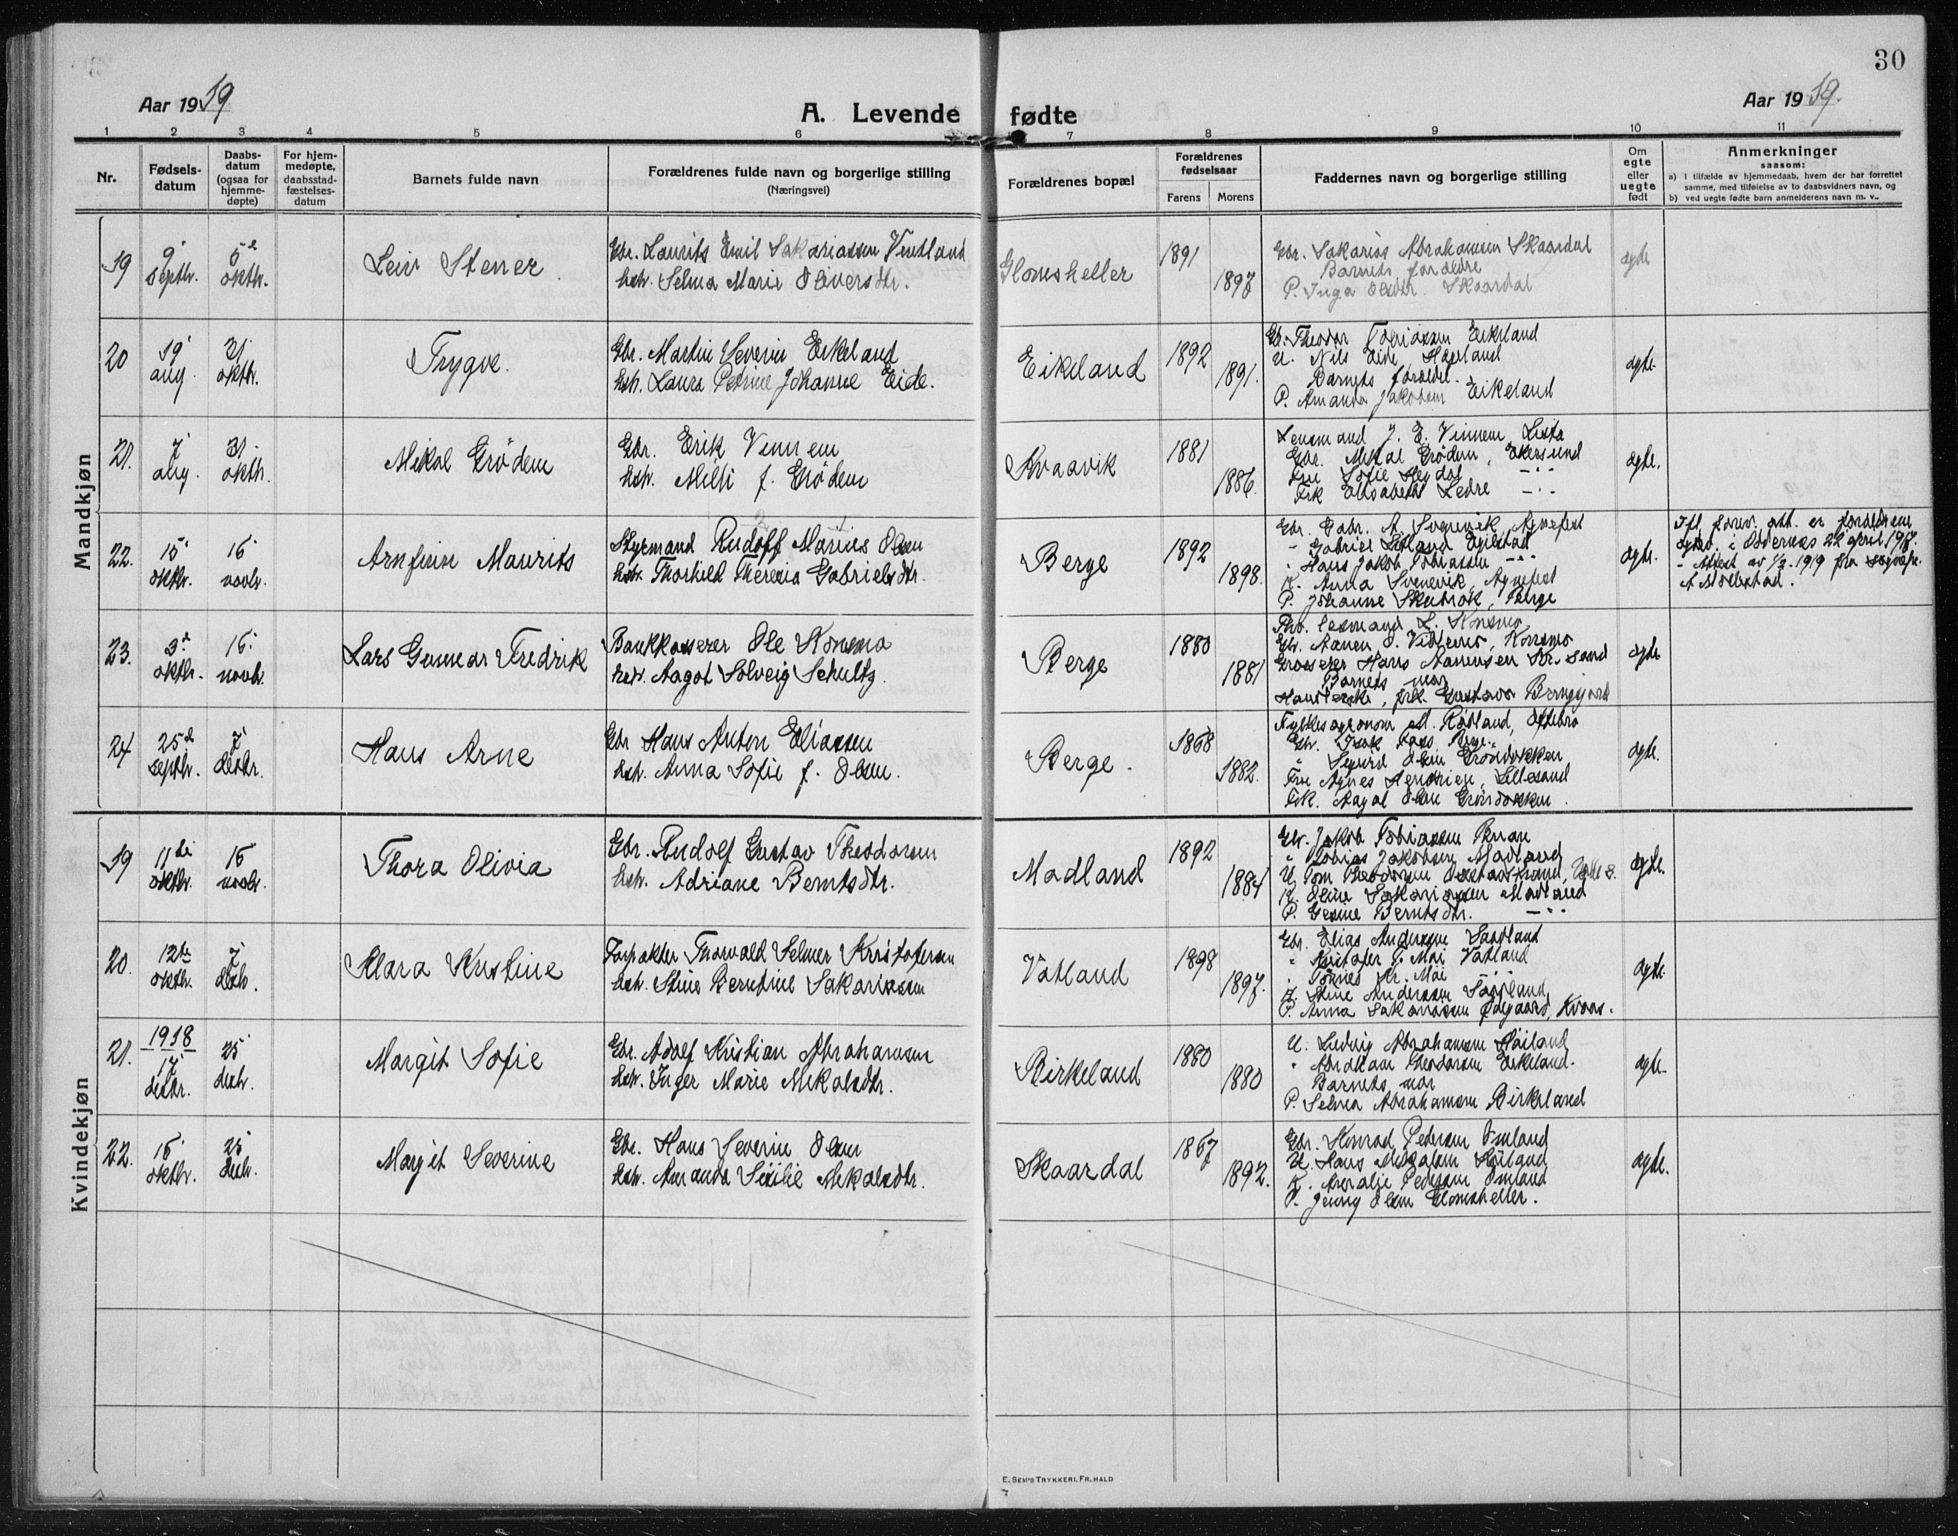 30
Aar 1919
A. Levende fødte
Aar 1919.
1 2 3 4 5 6 7 8 9 10 11
Nr.
Fødsels-
datum
Daabs-
datum
(ogsaa for
hjemme-
døpte)
For hjem-
medøpte,
daabsstad-
fæstelses-
datum
Barnets fulde navn
Forældrenes fulde navn og borgerlige stilling
(Næringsvei)
Forældrenes bopæl
Forældrenes
fødselsaar
Farens Morens
Faddernes navn og borgerlige stilling
Om
egte
eller
uegte
født
Anmerkninger
saasom:
a) i tilfælde av hjemmedaab, hvem der har forrettet
samme, med tilføielse av to daabsvidners navn, og
b) ved uegte fødte barn anmelderens navn m. v..
Mandkjøn
19
9
septbr.
5
oktbr.
Leiv Stener
Gbr. Laurits Emil Sakariassen Ventland
hstr. Selma Marie Oliversdtr.
Glomsheller
1891
1897
Gbr. Sakarias Abrahamsen Skaardal
Barnets foræld­re
P. Inga Skaardal
ægte
20
19
aug.
31
oktbr.
Trygve.
Gbr. Martin Severin Eikeland
hstr. Laura Petrine Johanne Eide.
Eikeland
1892
1891.
Gbr. Theodor Tobiassen Eikeland
U. Nils Eide,
Barnets foræld.
P. Amanda Jakobsen Eikeland
ægte.
21.
7
aug.
31
oktbr.
Mikal Grødem
Gbr. Erik Vinnem
hstr. Milli f. Grødem
Kvaavik
1881
1886.
Lensmand J. E. Vinnem, Lista
Gbr. Mikal Grødem, Ekersund
Fru Sofie
Frk. Elisabeth
ægte.
22.
15
oktbr.
16
novbr.
Arnfinn Maurits
Styrmand Rudolf Marius Olsen
hstr. Thorhild Theresia Gabrielsdtr.
Berge
1892
1898.
Gbr. Gabr. A. Svenevik, Agnefest
" Gabriel
" Hans Jakob Tobiassen
K. Anna Svenevik, Agnefest
P. Johanne Skubrok, Berge
ægte.
er forældrene
i Oddernes 22 april 1917.
- Attest av 1/2 1919 fra sogneprs.
A Mollestad.
23.
3
oktbr.
16
novbr.
Lars Gunnar Fredrik
Bankkasserer Ole Konsmo
hstr. Aagot Solveig Schultz.
Berge
1880
1881
L. Konsmo
Gbr. Aanen O. Vidtema, Konsmo
Grosserer Hans Aanensen Kr.sand
Barnets mor
frk. Gustava
ægte
24
25
septbr.
7
desbr.
Hans Arne
Gbr Hans Anton Eliassen
hstr. Anna Sofie f. Olsen.
Berge.
1868
1882.
Fylkesagronom M. Rødland,
Gbr. Isak Berge.
" Sigurd Olsen Grøndokken
Fru Agnes Lillesand
Frk. Aagot Olsen Grøndokken.
ægte.
Kvindekjøn
19
11
oktbr.
16
novbr.
Thora Olivia
Gbr. Rudolf Gustav Theodorsen
hstr. Adriane Berntsdtr.
Madland
1892
1884
Gbr. Jakob Tobiassen Bruan
" Tobias Jakobsen Madland
U. Tom Theodorsen
K. Oline Sakariassen Madland
P. Gesine Berntsdtr. — " —
ægte.
20.
12
oktbr.
7
desbr.
Klara Kristine
Forpakter Thorvald Selmer Kristofersen
hstr. Stine Berntine Sakariassen
Vatland
1898
1897.
Gbr. Elias Andersen
" Kristofer T. Moi Vatland
" Tønnes Kr. Moi
K. Stine Andersen
P. Anna Sakariassen Ødegaard, Kvaas.
ægte.
21.
1918
17
desbr.
25
desbr.
Margit Sofie
Gbr. Adolf Kristian Abrahamsen
hstr. Inger Marie Mikalsdtr.
Birkeland
1880
1880
U. Ludvig Abrahamsen Høiland
" Abraham Theodorsen Eikeland.
Barnets mor
P. Selma Abrahamsen Birkeland
ægte
22.
16
oktbr.
25
desbr.
Margit Severine
Gbr. Hans Severin Olsen
hstr. Amanda Sesilie Mikalsdtr.
Skaardal
1867
1892.
Gbr. Konrad Pedersen Omland
U. Hans Mikalsen Høiland
K. Amalie Pedersen Omland
P. Jenny Olsen Glomsheller.
ægte.
E. SEM'S TRYKKERI, FR.HALD